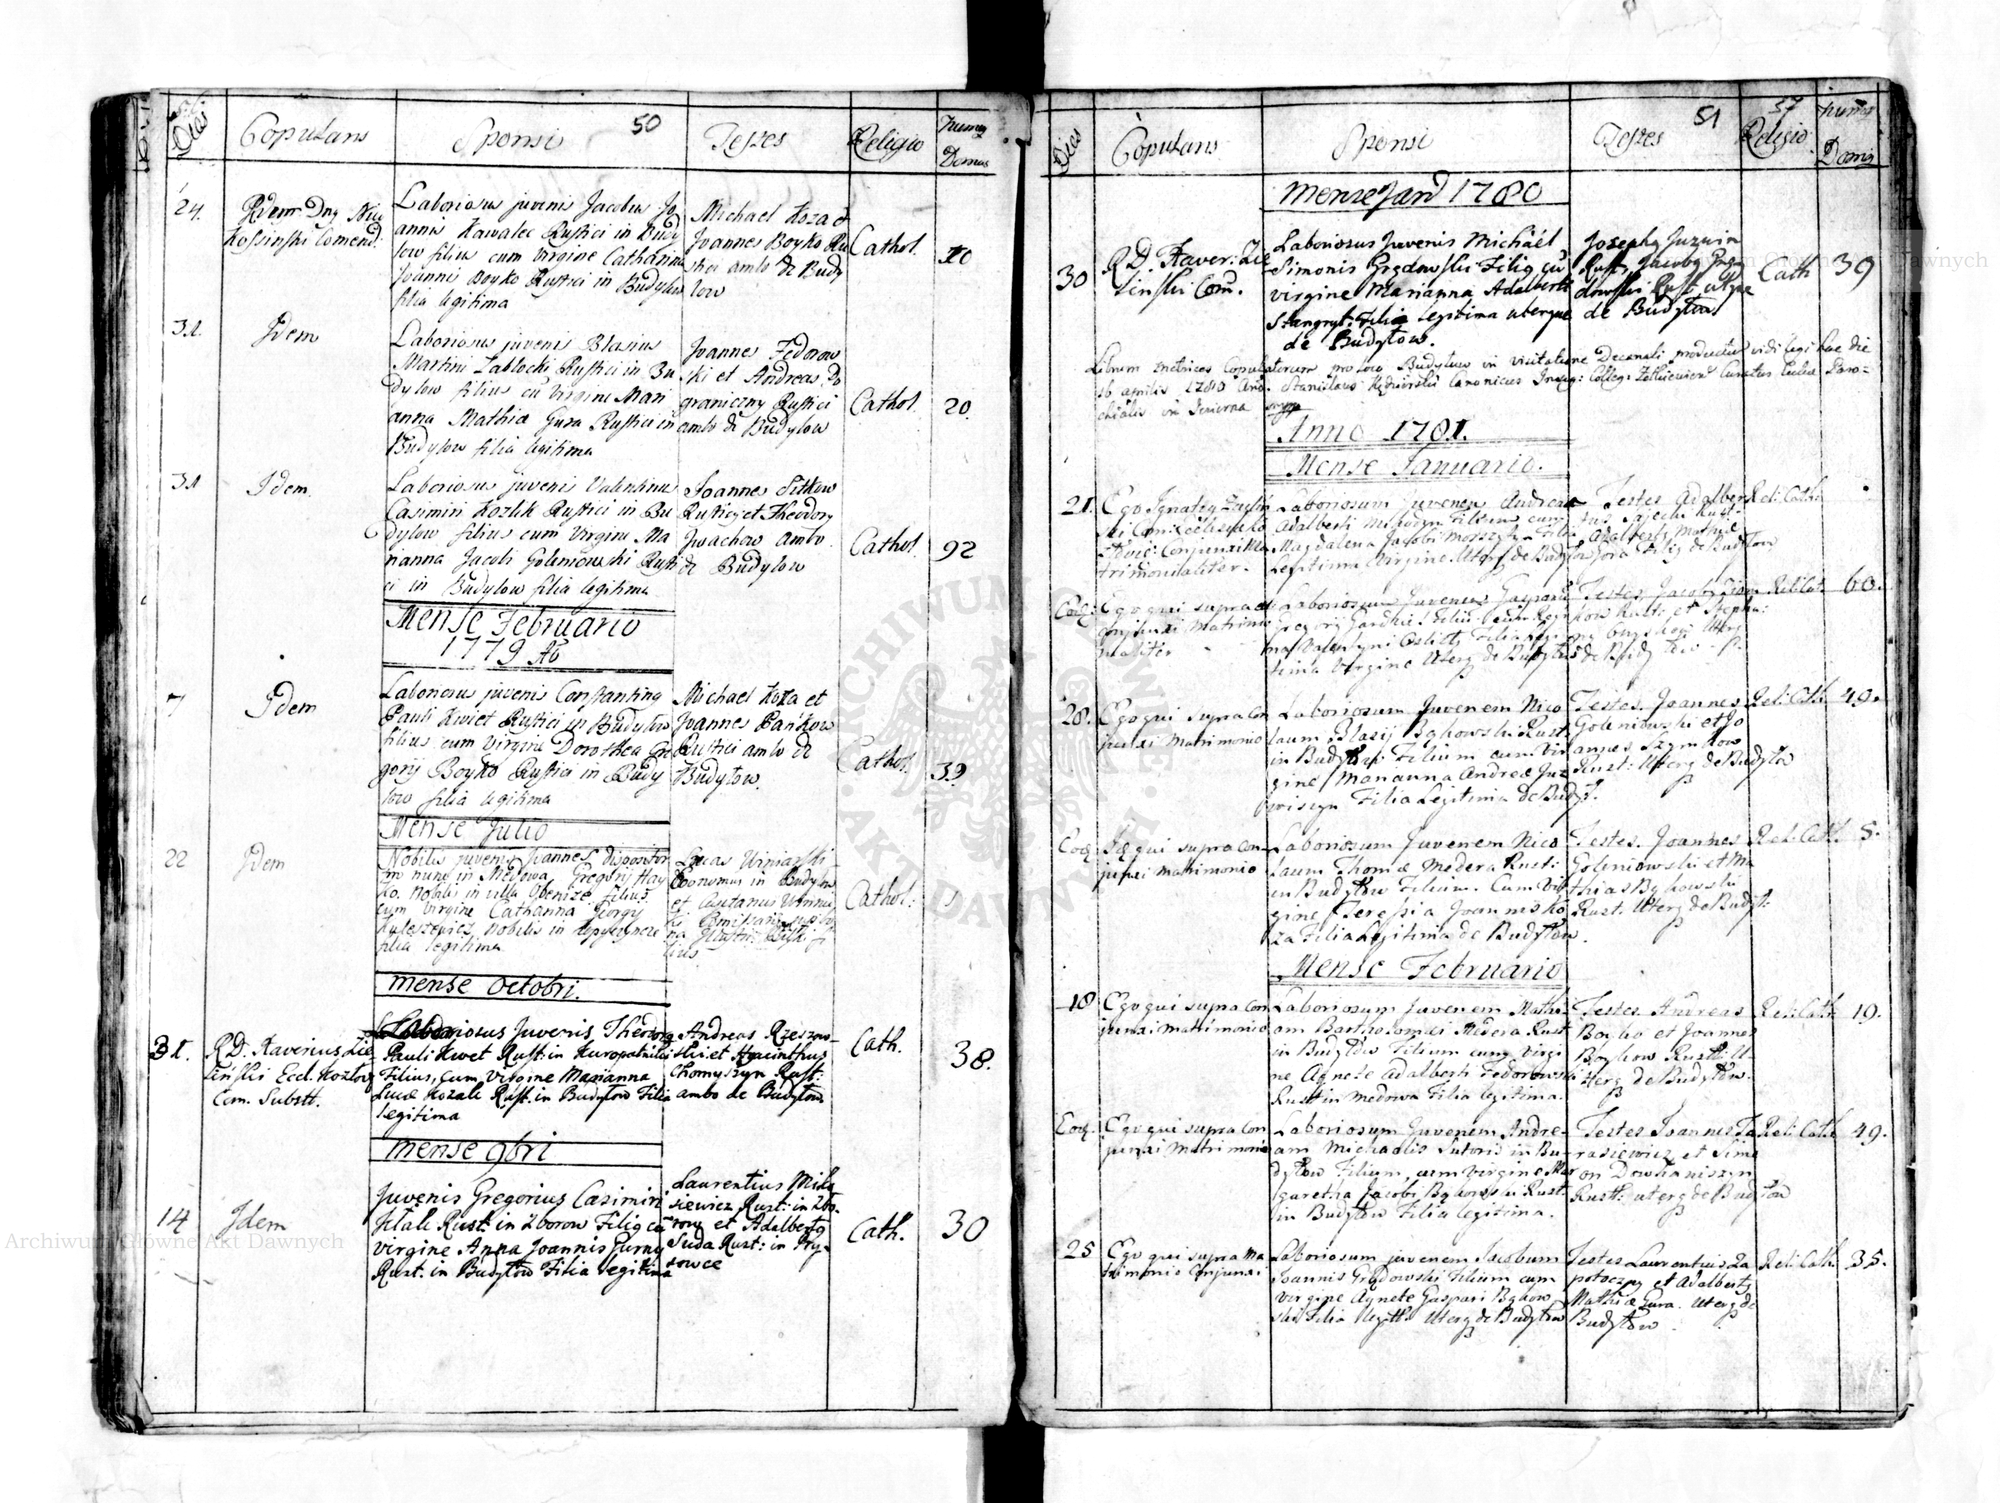 Dies Copulans Sponsi 50 Testes Religio Numerus Domus
24.
Idem Dnus Nic
Kossinski Comend:
Laboriosus juvenis Jacobus Jo
annis Kawalec Rustici in Budy
low filius cum virgine Catharina
Joannis Boyko Rustici in Budylow
filia legitima
Michael Koza et
Joannes Boyko Ru
stici ambo de Budy
low
Cathol.
10
31.
Idem
Laboriosus juvenis Blasius
Martini Zablocki Rustici in Bu
dylow filius cu virgine Mari
anna Mathia Gura Rustici in
Budylow filia legitima
Joannes Fedorow
ski et Andreas Po
graniczny Rustici
ambo de Budylow
Cathol.
20.
31
Idem.
Laboriosus juvenis Valentinus
Casimiri Kozlik Rustici in Bu
dylow filius cum virgine Ma
rianna Jacobi Goleniowski Rusti
ci in Budylow filia legitima
Joannes Sitkow
Rusticy et Theodory
Iwachow ambo
de Budylow
Cathol.
92
Mense Februario
1779 Ao
7
Idem
Laboriosus juvenis Constantinq
Pauli Kwiet Rustici in Budylow
filius cum virgine Dorothea Gre
gorij Boyko Rustici in Budy
low filia legitima
Michael Koza et
Joannes Pańkow
Rustici ambo de
Budylow.
Cathol.
39.
Mense Julio
22
Idem
Nobilis juvenis Joannes dispositor
nunc in Medowa Gregorij Hay
ko. Nobilis in villa filius
cum virgine Catharina Georgy
Kuleszewicz Nobilis in
filia legitima
Lucas Winiarski
Oeconomus in Budylow
et
Cathol:
1
mense Octobri.
31.
RD. Xaverius Zie
linski Eccl. Kozlov
Com. Substt.
Laboriosus Juvenis Theodorq
Pauli Kwet Rust: in Kuropatniki
Filius, cum virgine Marianna
Lucæ Kozale Rust. in Budylow Filia
legitima
Andreas Rzeszow-
ski et Hyacinthus
Chomyszyn Rust:
ambo de Budylow
Cath.
38.
mense 9bri
14
Idem
Juvenis Gregorius Casimiri
Hitali Rust: in Zborow Filiq cu
virgine Anna Joannis Gurny
Rust: in Budylow Filia legitima
Laurentius Mika
siewicz Rust: in Zbo
row et Adalbertq
Suda Rust: in Pry
sowce
Cath.
30
Dies Copulans Sponsi Testes 51 37 Religio Numerus Domus
Mense Jan 1780
30
RD. Xaver: Zie
linski Com.
Laboriosus Juvenis Michaël
Simonis Grądowski Filiq cu
virgine Marianna Adalberti
Stangryt: Filia legitima uterque
de Budylow.
Josephq Juzwin
Rust, Jacobq Grą
dowski Rust utque
de Budylow
Cath
39
Librum metrices Copulatorum pro loco Budylow in visitatione Decanali productum vidi legi hac die
16 aprilis 1780 Ano. Stanislaus Canonicus Colleg: Curatus Ecclæ Paro-
chialis in Jezierna
Anno 1781.
Mense Januario.
21.
Ego Ignatiq
ski Com:
Conjunxi Ma
trimonialiter.
Laboriosum juvenem Andrea
Adalberti Filium cum
Magdalena Jacobi Filia
Legitima Virgine. Uterq de Budylow
Testes Adalber
tus Sajecki Rust.
Adalbertq Mathiæ
Gora Filiq de Budylow
Reli: Cath
Eodq:
Ego qui supra
Conjunxi Matrimo
nialiter
Laboriosum Juvenem Gaspari
Gregorij Filiu cum Regi
na Valentyni Filia legi
tima Virgine Uterq de Budylow
Testes Jacobq
Rust: et Stepha:
nq Uterq
de Budylow
Reli: Cat:
60.
28.
Ego qui supra Con
junxi Matrimonio
Laboriosum Juvenem Nico
laum Blasij Bykowski Rust
in Budylow: Filium cum vir
gine Marianna Andreæ Juz
wiszyn Filia Legitima de Budyl.
Testes. Joannes
Goleniowski et Jo
annes Szymkow
Rust: Uterq de Budylow
Reli: Cath
49.
Eodq
Ego qui supra Con-
junxi Matrimonio
Laboriosum Juvenem Nico
laum Thomæ Medera Rust:
in Budylow Filium. Cum vir
gine Teressia Joannis Ko
za Filia Legitima de Budylow.
Testes. Joannes
Goleniowski et Ma
thias Bykowski
Rust. Uterq de Budyl:
Reli: Cath
5.
Mense Februario
18
Ego qui supra Con
junxi Matrimonio
Laboriosum Juvenem Mathi
am Bartholomæi Medera Rust
in Budylow Filium cum virgi
ne Agnete Adalberti Fedorowski
Rust in Medowa Filia legitima.
Testes Andreas
Boyko et Joannes
Boykow Rustt: U-
terq de Budylow.
Reli: Cath
19.
Eodq.
Ego qui supra Con
junxi Matrimonio
Laboriosum Juvenem Andre-
am Michaelis Sutoris in Bu-
dylow Filium, cum virgine Mar
garetha Jacobi Bykowski Rust.
in Budylow Filia legitima.
Testes Joannes Ta
rasiewicz et Sime
on Dowhaniszyn
Rustt: uterq de Budylow
Reli: Cath
49.
25
Ego qui supra Ma
trimonio Conjunxi
Laboriosum juvenem Jacobum
Joannis Grądowski Filium cum
Virgine Agnete Gaspari Bykow
ski Filia legitt. Uterq de Budylow
Testes Laurentius Za
potoczny et Adalbertq
Mathiæ Gura. Uterq de
Budylow.
Reli: Cath.
35.
Archiwum Główne Akt Dawnych
Archiwum Główne Akt Dawnych
ARCHIWUM GŁÓWNE AKT DAWNYCH